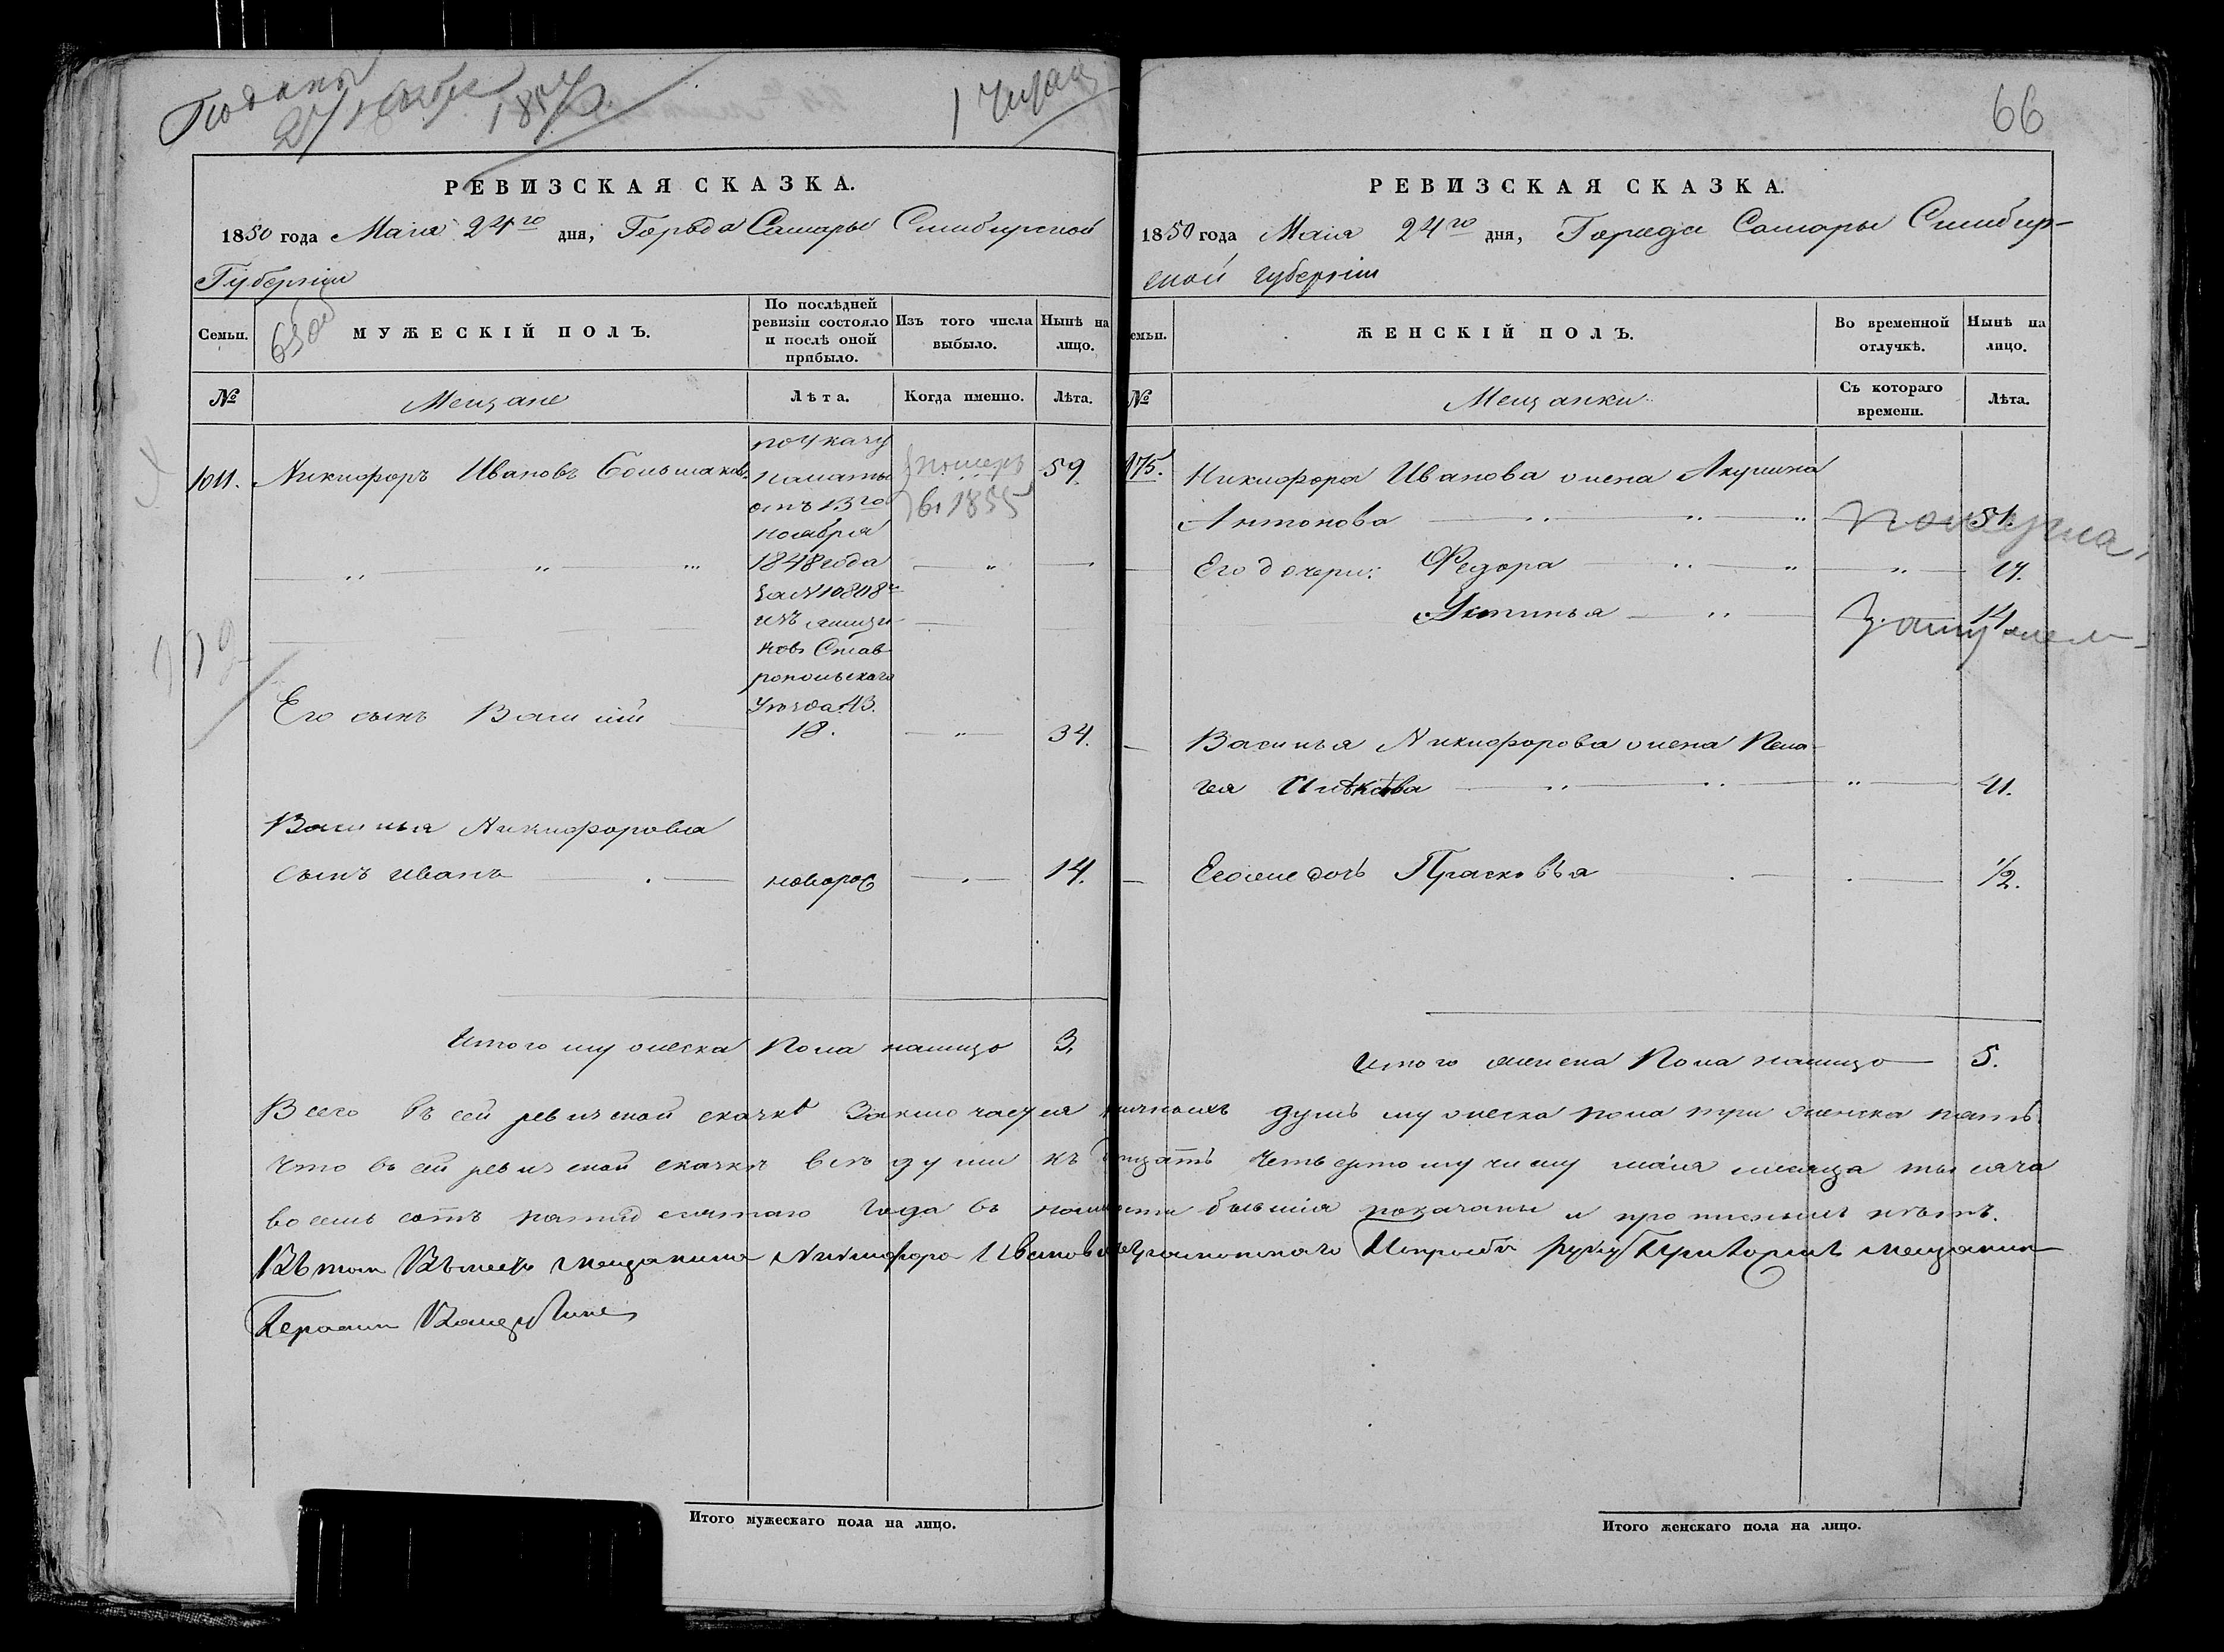 Поданы
27 Октбр 1857 г.
РЕВИЗСКАЯ СКАЗКА.
1850 года Маія 24го дня, Города Самары Симбирской
Губерніи
Семьи.
650й
МУЖЕСКІЙ ПОЛЪ.
По послѣдней ревизіи состояло и послѣ оной прибыло.
Изъ того числа выбыло.
Нынѣ на лицо.
№
Мещане
Лѣта.
Когда именно.
Лѣта.
1011. Никифоръ Ивановъ Большаковъ.
поуказу
палаты
отъ 13го
ноября
1848 года
за № 10808
изъ
ковъ Став
ропольскаго
Уѣзда 43.
померъ
въ 1855
59.
Его сынъ Василій 18. 34.
Василья Никифорова
сынъ Иванъ новорос 14.
Итого мужеска Пола налицо 3.
66
РЕВИЗСКАЯ СКАЗКА.
1850 года Маія 24го дня, Города Самары Симбир-
ской губерніи
емьи.
ЖЕНСКІЙ ПОЛЪ.
Во временной отлучкѣ.
Нынѣ на лицо.
№
Мещанки
Съ котораго времени.
Лѣта.
175. Никифора Иванова жена Акулина
Антонова 51.
Его дочери: Федора 17.
Устинья 14
Замужем
Василья Никифорова жена Пела-
гея 41.
Его же дочь Прасковья 1/2.
Итого женска Пола налицо 5.
Всего въ сей ревизской сказкѣ Заключается личныхъ душъ мужеска пола три женска пять
что въ сей ревизской сказкѣ всѣ души къ двадцать четвертому числу маія месяца тысяча
восемь сотъ пятидесятаго года въ наличности бывшія показаны и прописныхъ нѣтъ.
Въ том Вместо мещанина Никифора Иванова неграмотнаго Попрозбѣ руку Приложилъ мещанин
Герасим
Итого мужескаго пола на лицо.
Итого женскаго пола на лицо.